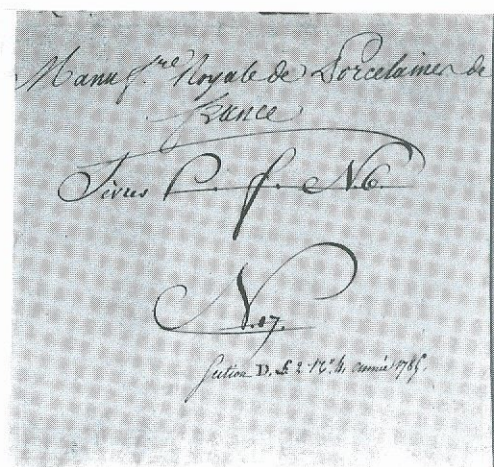 Manuf.re Royale de Porcelaines de
france
Sèvres P. f. N.6.
N.17.
Section D. § 2. N.° 4. année 1785.